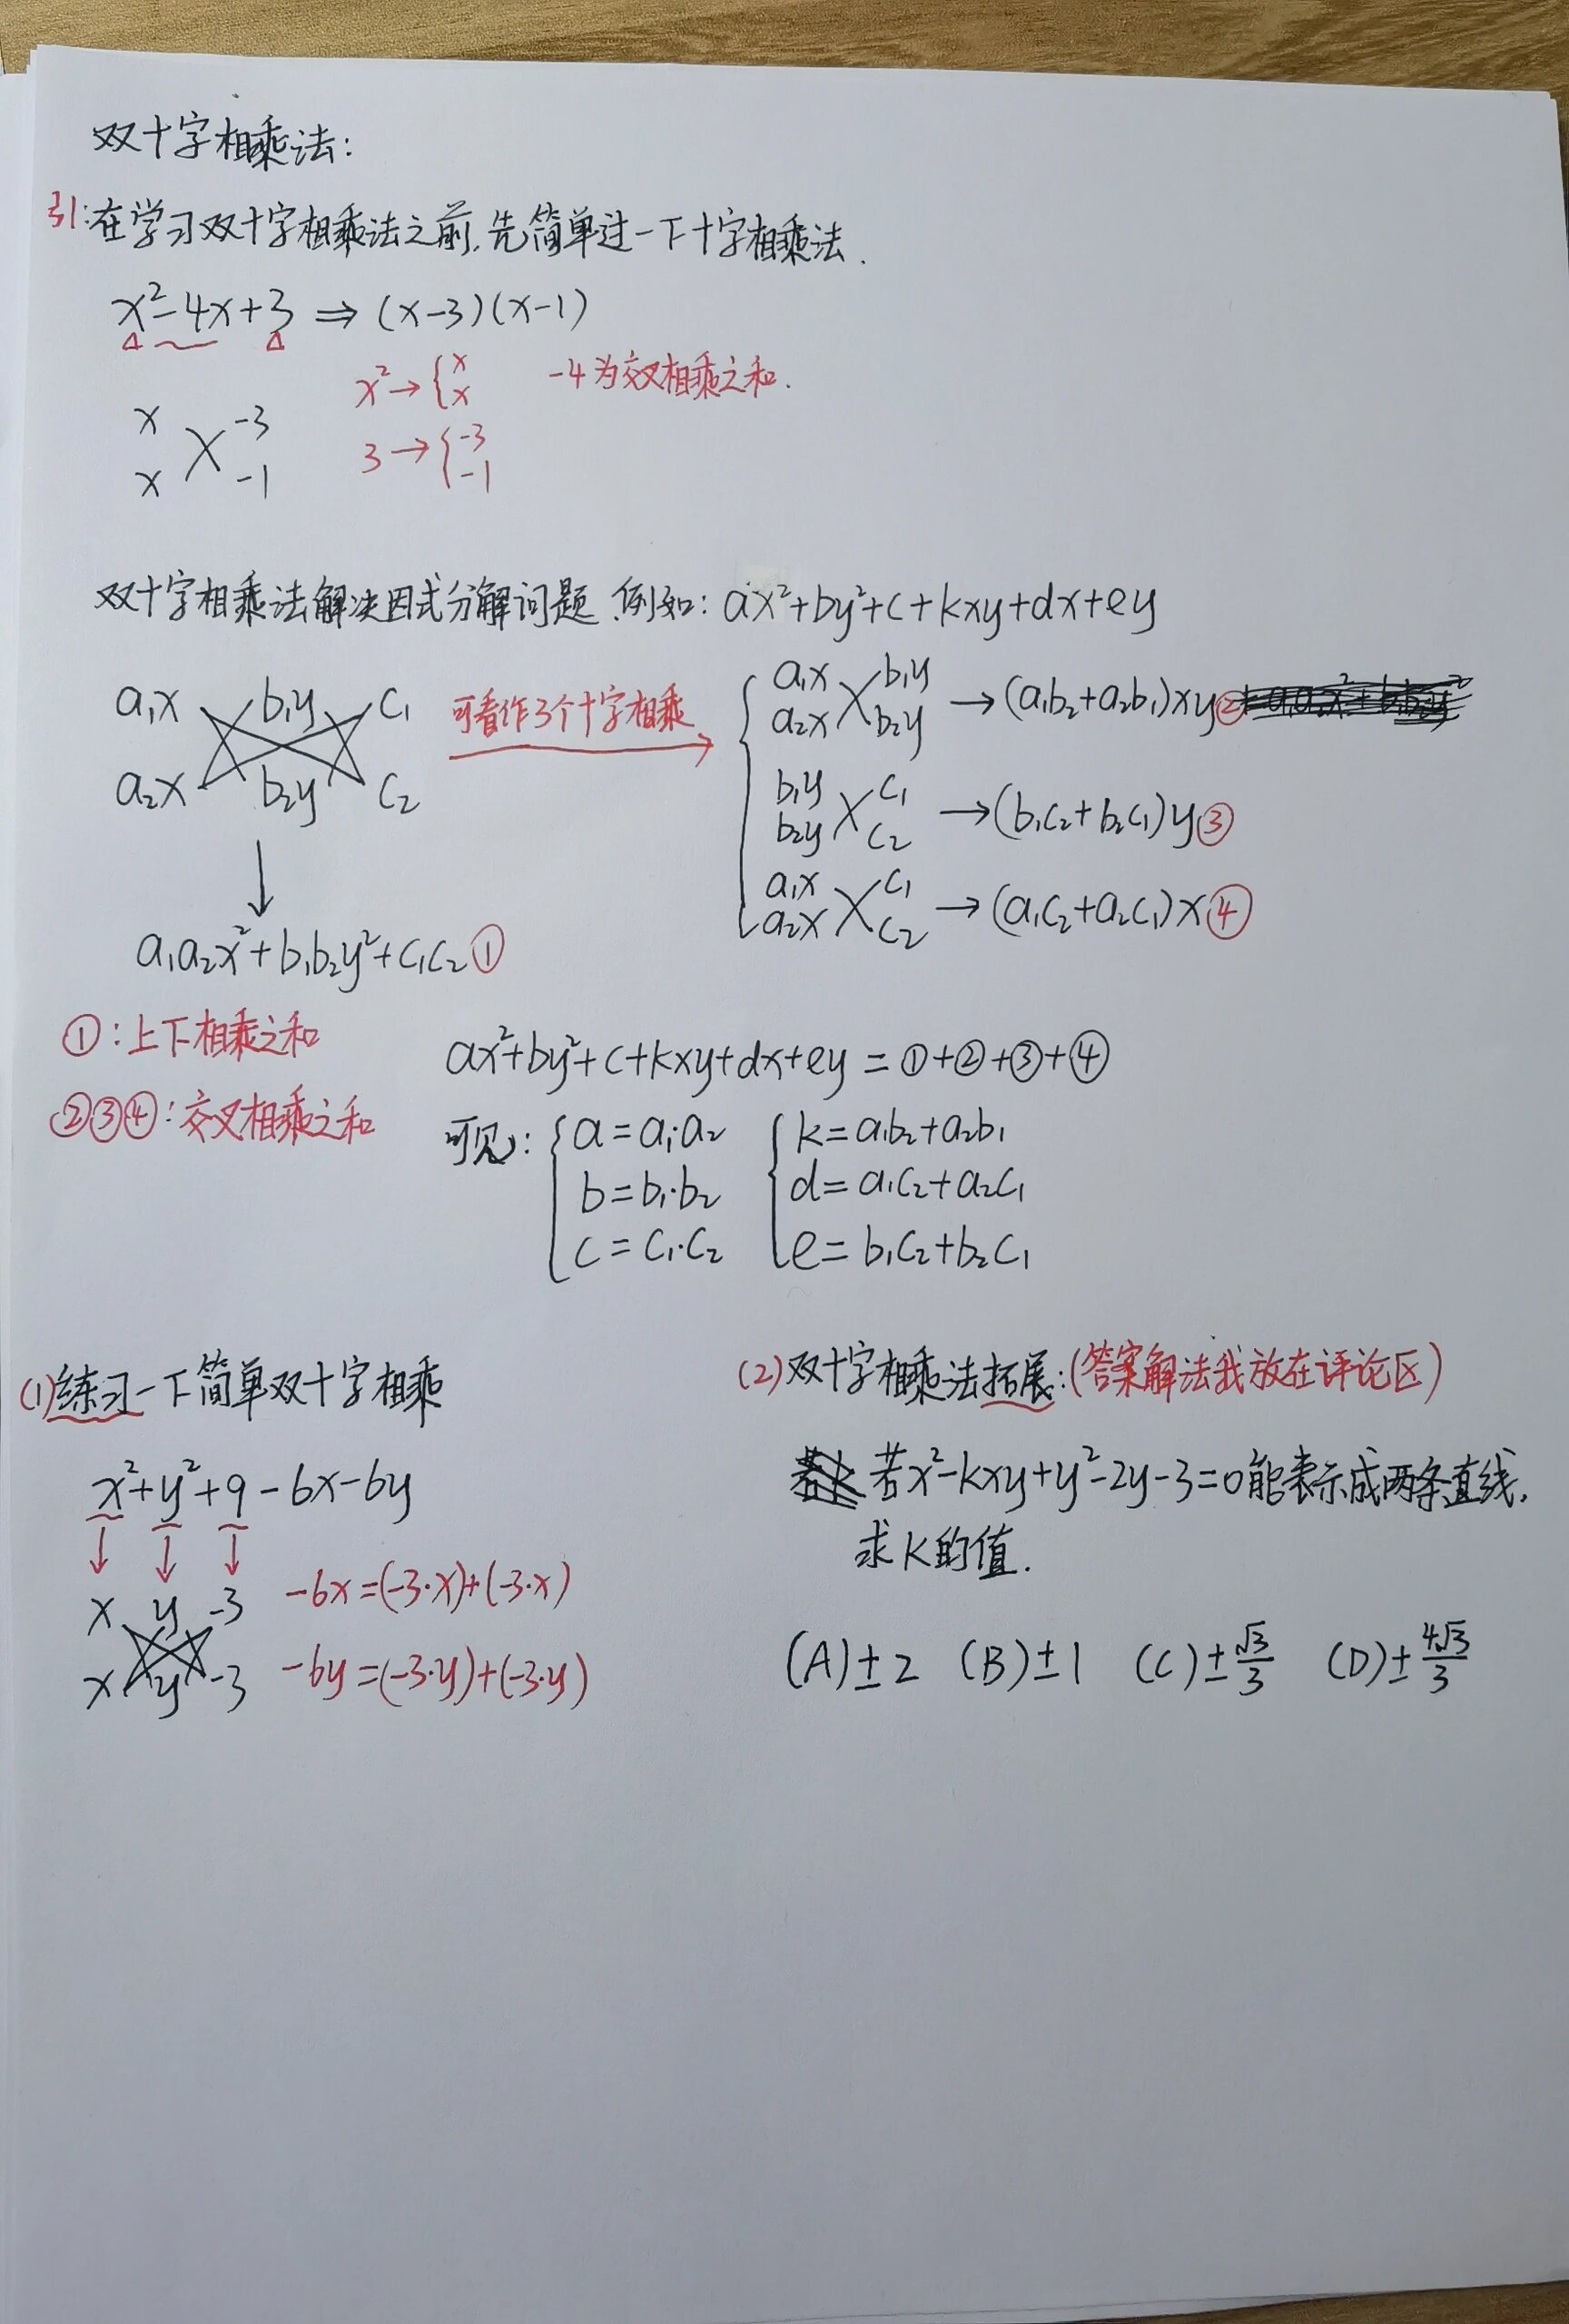 双十字相乘法:
引:在学习双十字相乘法之前,先简单过一下十字相乘法.
x²-4x+3 ⇒ (x-3)(x-1)
x²→{x x
-4为交叉相乘之和.
x -3
x -1
3→{-3 -1
双十字相乘法解决因式分解问题.例如: ax²+by²+c+kxy+dx+ey
a₁x b₁y c₁
a₂x b₂y c₂
可看作3个十字相乘
a₁x b₁y
a₂x b₂y
→(a₁b₂+a₂b₁)xy②
b₁y c₁
b₂y c₂
→(b₁c₂+b₂c₁)y③
a₁x c₁
a₂x c₂
→(a₁c₂+a₂c₁)x④
a₁a₂x²+b₁b₂y²+c₁c₂①
①:上下相乘之和
②③④:交叉相乘之和
ax²+by²+c+kxy+dx+ey=①+②+③+④
可见:
a=a₁·a₂
b=b₁·b₂
c=c₁·c₂
k=a₁b₂+a₂b₁
d=a₁c₂+a₂c₁
e=b₁c₂+b₂c₁
(1)练习一下简单双十字相乘
x²+y²+9-6x-6y
x y -3
x y -3
-6x=(-3·x)+(-3·x)
-6y=(-3·y)+(-3·y)
(2)双十字相乘法拓展:(答案解法我放在评论区)
若x²-kxy+y²-2y-3=0能表示成两条直线,
求k的值.
(A)±2 (B)±1 (C)±√3/3 (D)±4√3/3